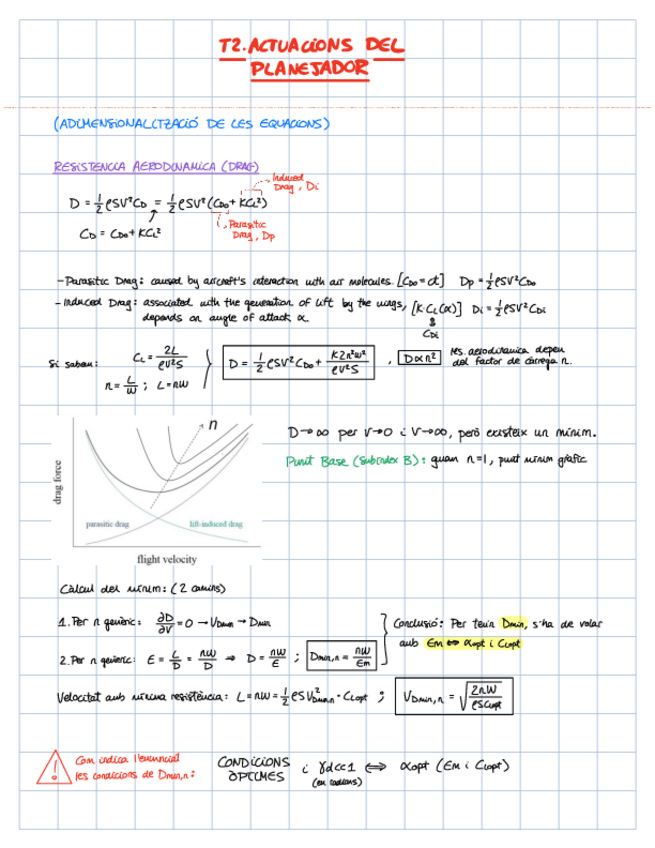 T2. ACTUACIONS DEL
PLANEJADOR
(ADIMENSIONALITZACIÓ DE LES EQUACIONS)
RESISTENCIA AERODINAMICA (DRAG)
Induced
Drag, Di
D = 1/2 ρSV²CD = 1/2 ρSV²(CD0 + KCL²)
CD = CD0 + KCL²
Parasitic
Drag, Dp
- Parasitic Drag: caused by aircraft's interaction with air molecules. [CD0 = ct] Dp = 1/2 ρSV²CD0
- Induced Drag: associated with the generation of lift by the wings, [K·CL(α)] Di = 1/2 ρSV²CDi
depends on angle of attack α.
CDi
Si sabem: CL = 2L/ρV²S
n = L/W ; L = nW
D = 1/2 ρSV²CD0 + K2n²W²/ρV²S , D∝n²
Res. aerodinamica depen
del factor de càrrega n.
n
drag force
parasitic drag
lift-induced drag
flight velocity
D→∞ per V→0 i V→∞, però existeix un mínim.
Punt Base (Subíndex B): quan n=1, punt mínim gràfic
Càlcul del mínim: (2 camins)
1. Per n genèric: ∂D/∂V = 0 → VDmin → Dmin
2. Per n genèric: E = L/D = nW/D ⇒ D = nW/E ; Dmin,n = nW/Em
Conclusió: Per tenir Dmin, s'ha de volar
amb Em ⇔ αopt i CLopt
Velocitat amb mínima resistència: L = nW = 1/2 ρSV²Dmin,n · CLopt ; VDmin,n = √(2nW/ρSCLopt)
Com indica l'enunciat
les condicions de Dmin,n:
CONDICIONS
ÒPTIMES
i γd<<1 ⇔ αopt (Em i CLopt)
(en radians)